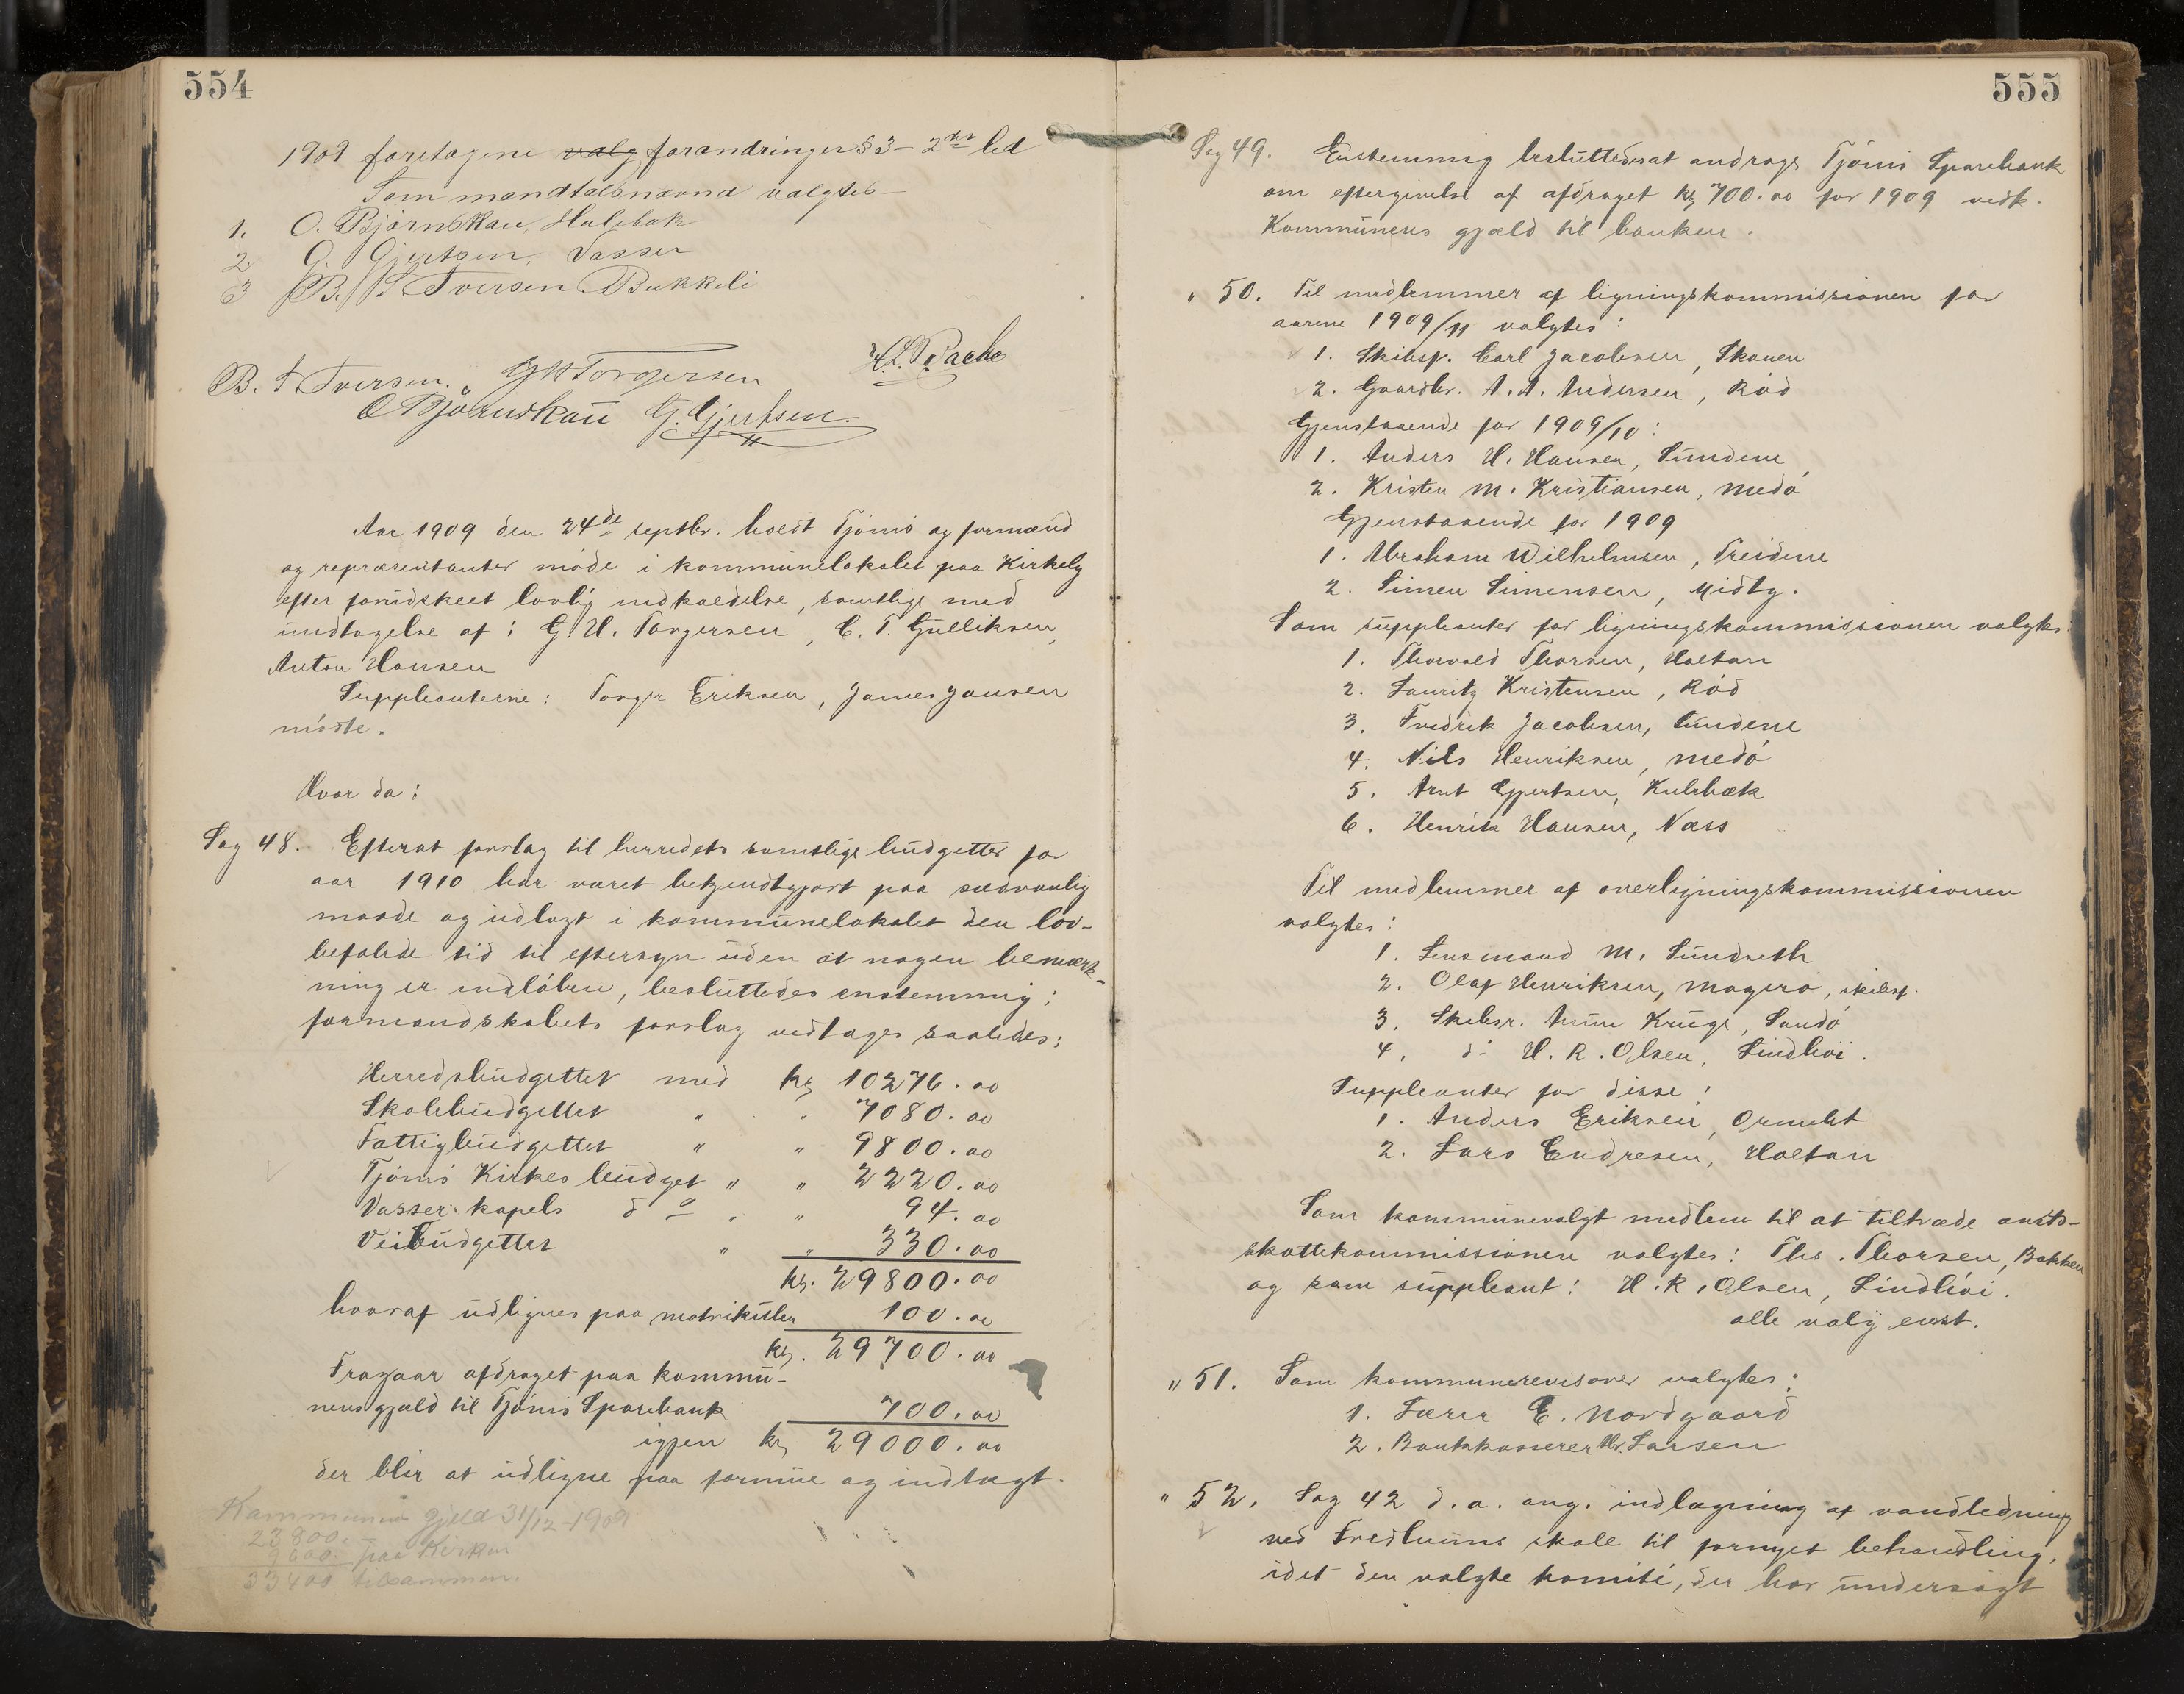 554
1909 foretagene valg forandringer § 3 - 2det led
Som mandtalsnævnd valgtes
1. O. Bjørnskau, Holebak
2 G. Gjertsen, Vasser
3 B. S. Iversen Bukkeli
B. S. Iversen. GHTorgersen H.L. Bache
O Bjørnskau G. Gjertsen.
Aar 1909 den 24de septbr. holdt Tjømø og formænd
og repræsentanter møde i kommunelokalet paa Kirkely
efter forudskeet lovlig indkaldelse, samtlige med
undtagelse af: G. H. Torgersen, C. T. Gulliksen,
Anton Hansen
Suppleanterne: Torger Eriksen, James Jansen
mødte.
Hvor da:
Sag 48. Efterat forslag til herredets samtlige budgetter for
aar 1910 har været bekjendtgjort paa sædvanlig
maade og udlagt i kommunelokalet den lov-
befalede tid til eftersyn uden at nogen bemærk-
ning er indløben, besluttedes enstemmig:
formandskabets forslag vedtages saaledes:
Herredsbudgettet med kr 10276.00
Skolebudgettet " " 7080.00
Fattigbudgettet " " 9800.00
Tjømø Kirkes budget " " 2220.00
Vasser kapels do " " 94.00
Veibudgettet " " 330.00
kr. 29800.00
hvoraf udlignes paa matrikulen 100.00
kr. 29700.00
Fragaar afdraget paa kommu-
nens gjæld til Tjømø Sparebank 700.00
igjen kr 29000.00
der blir at udligne paa formue og indtægt.
Kommunens gjeld 31/12-1909
23800.-
9600. paa Kirken
33400 tilsammen.
555
Sag 49. Enstemmig besluttedes at andrage Tjømø Sparebank
om eftergivelse af afdraget kr 700.00 for 1909 vedk.
Kommunens gjæld til banken.
" 50. Til medlemmer af ligningskommissionen for
aarene 1909/11 valgtes:
1. Skibsf. Carl Jacobsen, Skauen
2. Gaardbr. A. A. Andersen, Rød
Gjenstaaende for 1909/10:
1. Anders H. Hansen, Sundene
2. Kristen M. Kristiansen, Medø
Gjenstaaende for 1909
1. Abraham Wilhelmsen, Treidene
2. Simen Simensen, Midtg.
Som suppleanter for ligningskommissionen valgtes
1. Thorvald Thorsen, Holtan
2. Lauritz Kristensen, Rød
3. Fredrik Jacobsen, Sundene
4. Nils Henriksen, Medø
5. Arnt Gjertsen, Kulebæk
6. Henrik Hansen, Næss
Til medlemmer af overligningskommissionen
valgtes:
1. Lensmand M. Sundseth
2. Olaf Henriksen, Magerø, skibsf.
3. Skibsr. Anun Kruge, Sandø
4. do H. R. Olsen, Lindhøi.
Suppleanter for disse:
1. Anders Eriksen, Ormelet
2. Lars Endresen, Holtan
Som kommunevalgt medlem til at tiltræde amts-
skattekommissionen valgtes: Ths. Thorsen, Bakken
og som suppleant: H. R. Olsen, Lindhøi.
alle valg enst.
" 51. Som kommunerevisorer valgtes:
1. Lærer E. Nordgaard
2. Bankkasserer Hr. Larsen
" 52. Sag 42 d. a. ang. indlægning af vandledning
ved Fredlunds skole til fornyet behandling,
idet den valgte komité, der har undersøgt